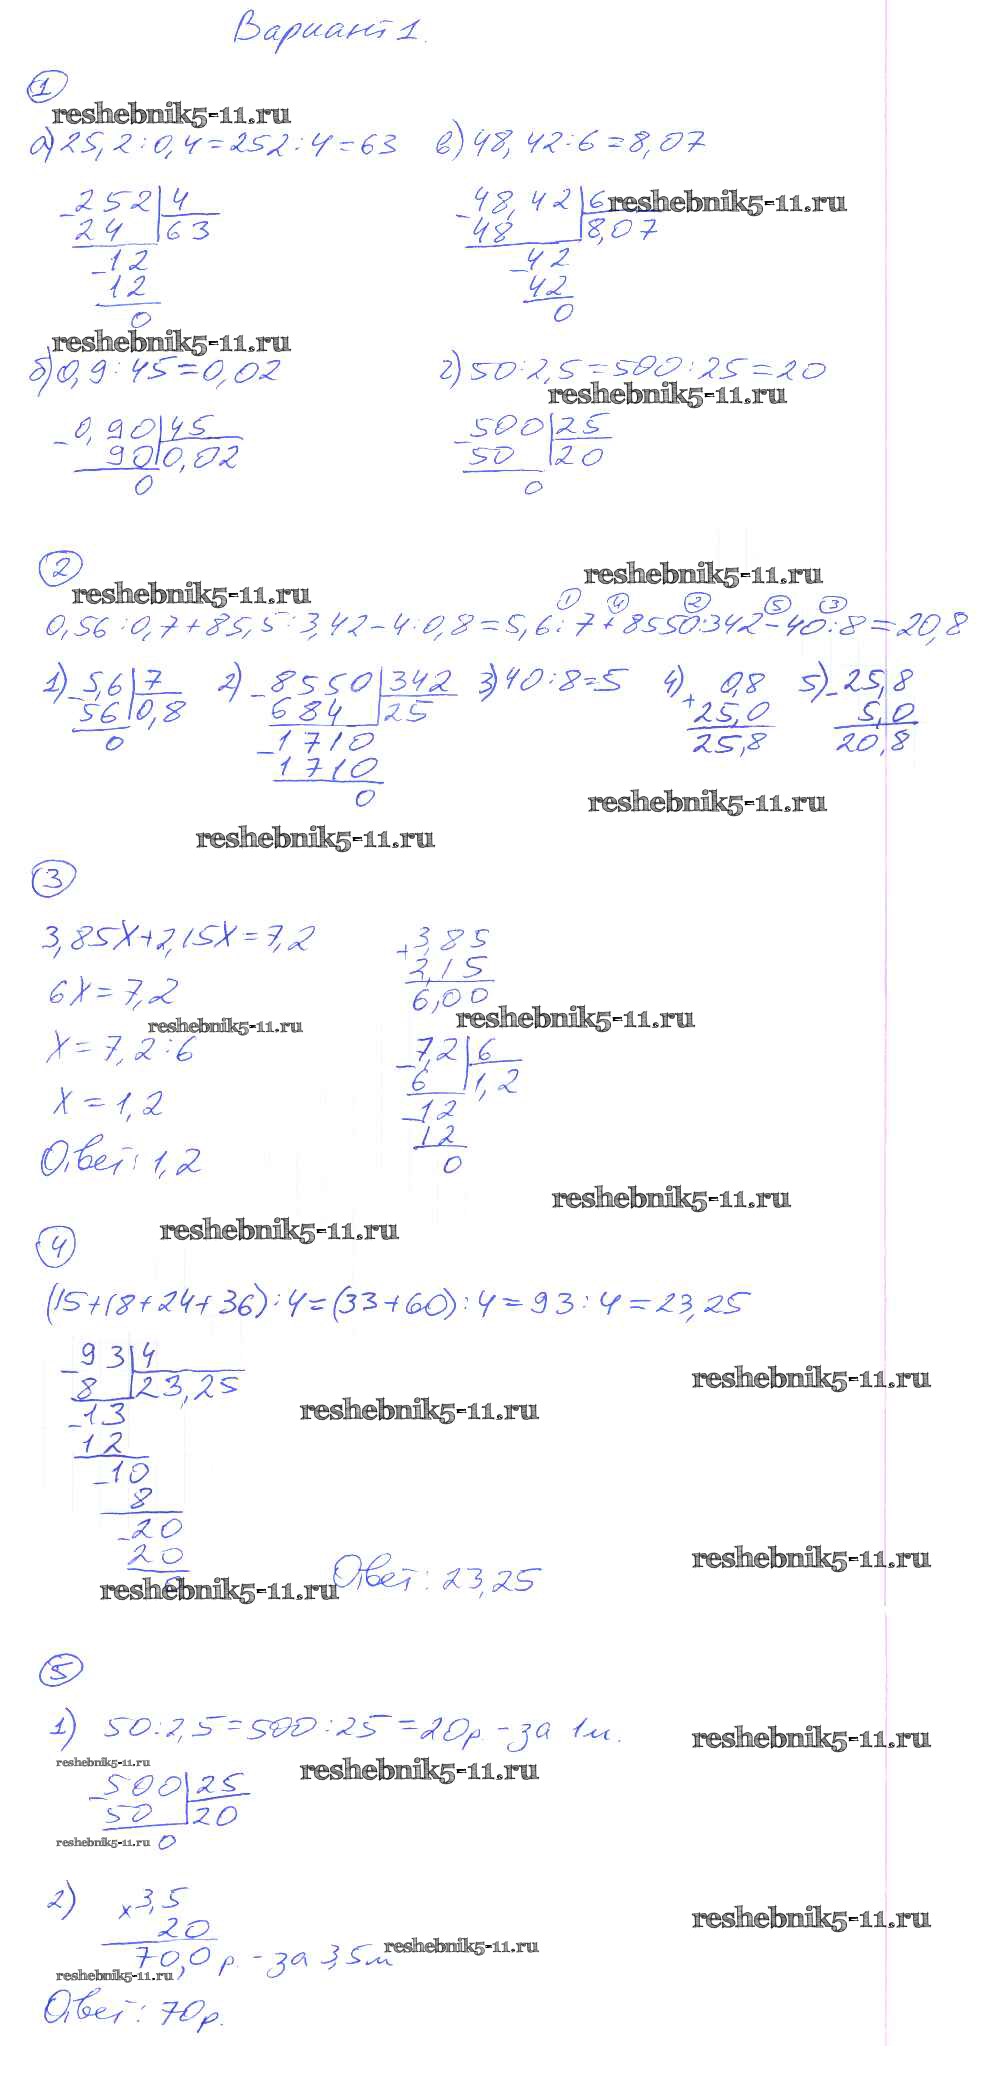 Вариант 1.
1
reshebnik5-11.ru
а) 25,2:0,4=252:4=63 в) 48,42:6=8,07
reshebnik5-11.ru
-252|4 -48,42|6
24 |63 48 |8,07
-12 -42
12 42
0 0
reshebnik5-11.ru
б) 0,9:45=0,02 г) 50:2,5=500:25=20
reshebnik5-11.ru
-0,90|45 -500|25
90|0,02 50 |20
0 0
2
reshebnik5-11.ru
reshebnik5-11.ru
1 4 2 5 3
0,56:0,7+85,5:3,42-4:0,8=5,6:7+8550:342-40:8=20,8
1) -5,6|7 2) -8550|342 3) 40:8=5 4) +0,8 5) -25,8
56|0,8 684 |25 25,0 5,0
0 -1710 25,8 20,8
1710
0
reshebnik5-11.ru
reshebnik5-11.ru
3
3,85х+2,15х=7,2 +3,85
2,15
6х=7,2 6,00
reshebnik5-11.ru reshebnik5-11.ru
х=7,2:6 -7,2|6
6 |1,2
х=1,2 -12
12
Ответ: 1,2 0
reshebnik5-11.ru
reshebnik5-11.ru
4
(15+18+24+36):4=(33+60):4=93:4=23,25
-93|4
8 |23,25
reshebnik5-11.ru
-13
reshebnik5-11.ru
12
-10
8
-20
20
reshebnik5-11.ru
0
Ответ: 23,25
reshebnik5-11.ru
5
1) 50:2,5=500:25=20р. - за 1м.
reshebnik5-11.ru
reshebnik5-11.ru
reshebnik5-11.ru
-500|25
50 |20
0
reshebnik5-11.ru
2) ×3,5
20
reshebnik5-11.ru
70,0р. - за 3,5м
reshebnik5-11.ru
reshebnik5-11.ru
Ответ: 70р.